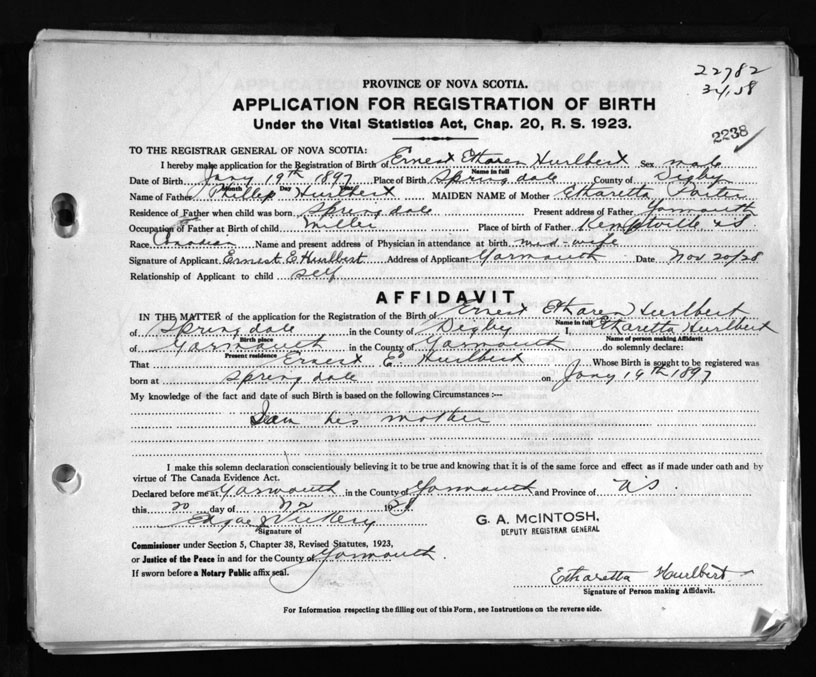 22782
34,58
PROVINCE OF NOVA SCOTIA.
APPLICATION FOR REGISTRATION OF BIRTH
Under the Vital Statistics Act, Chap. 20, R. S. 1923.
2238
TO THE REGISTRAR GENERAL OF NOVA SCOTIA:
I hereby make application for the Registration of Birth of Ernest Etharen Hurlbert Sex male
Name in full
Date of Birth Jany 19th 1897 Place of Birth Springdale County of Digby
Month Day Year
Name of Father Phillip Hurlbert MAIDEN NAME of Mother Etharetta Porter
Residence of Father when child was born Springdale Present address of Father Yarmouth
Occupation of Father at Birth of child Miller Place of birth of Father Kemptville NS
Race Canadian Name and present address of Physician in attendance at birth mid-wife
Signature of Applicant Ernest E Hurlbert Address of Applicant Yarmouth Date Nov 20/28
Relationship of Applicant to child self
AFFIDAVIT
IN THE MATTER of the application for the Registration of the Birth of Ernest Etharen Hurlbert
Name in full
of Springdale in the County of Digby I, Etharetta Hurlbert
Birth place Name of person making Affidavit
of Yarmouth in the County of Yarmouth do solemnly declare:
Present residence
That Ernest E. Hurlbert Whose Birth is sought to be registered was
born at Springdale on Jany 19th 1897
My knowledge of the fact and date of such Birth is based on the following Circumstances :—
I am his mother
I make this solemn declaration conscientiously believing it to be true and knowing that it is of the same force and effect as if made under oath and by
virtue of The Canada Evidence Act.
Declared before me at Yarmouth in the County of Yarmouth and Province of NS.
this 20 day of 1928
Signature of
G. A. McINTOSH,
DEPUTY REGISTRAR GENERAL
Commissioner under Section 5, Chapter 38, Revised Statutes, 1923,
or Justice of the Peace in and for the County of Yarmouth.
If sworn before a Notary Public affix seal.
Etharetta Hurlbert
Signature of Person making Affidavit.
For Information respecting the filling out of this Form, see Instructions on the reverse side.